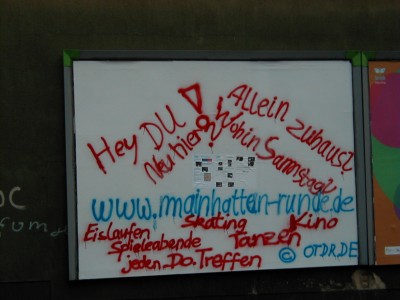 Hey DU!
Neu hier?
Allein zuhaus?
Wohin Samstags?
www.mainhattan-runde.de
Eislaufen Skating Kino
Spieleabende Tanzen
jeden Do. Treffen
© OTDR.DE